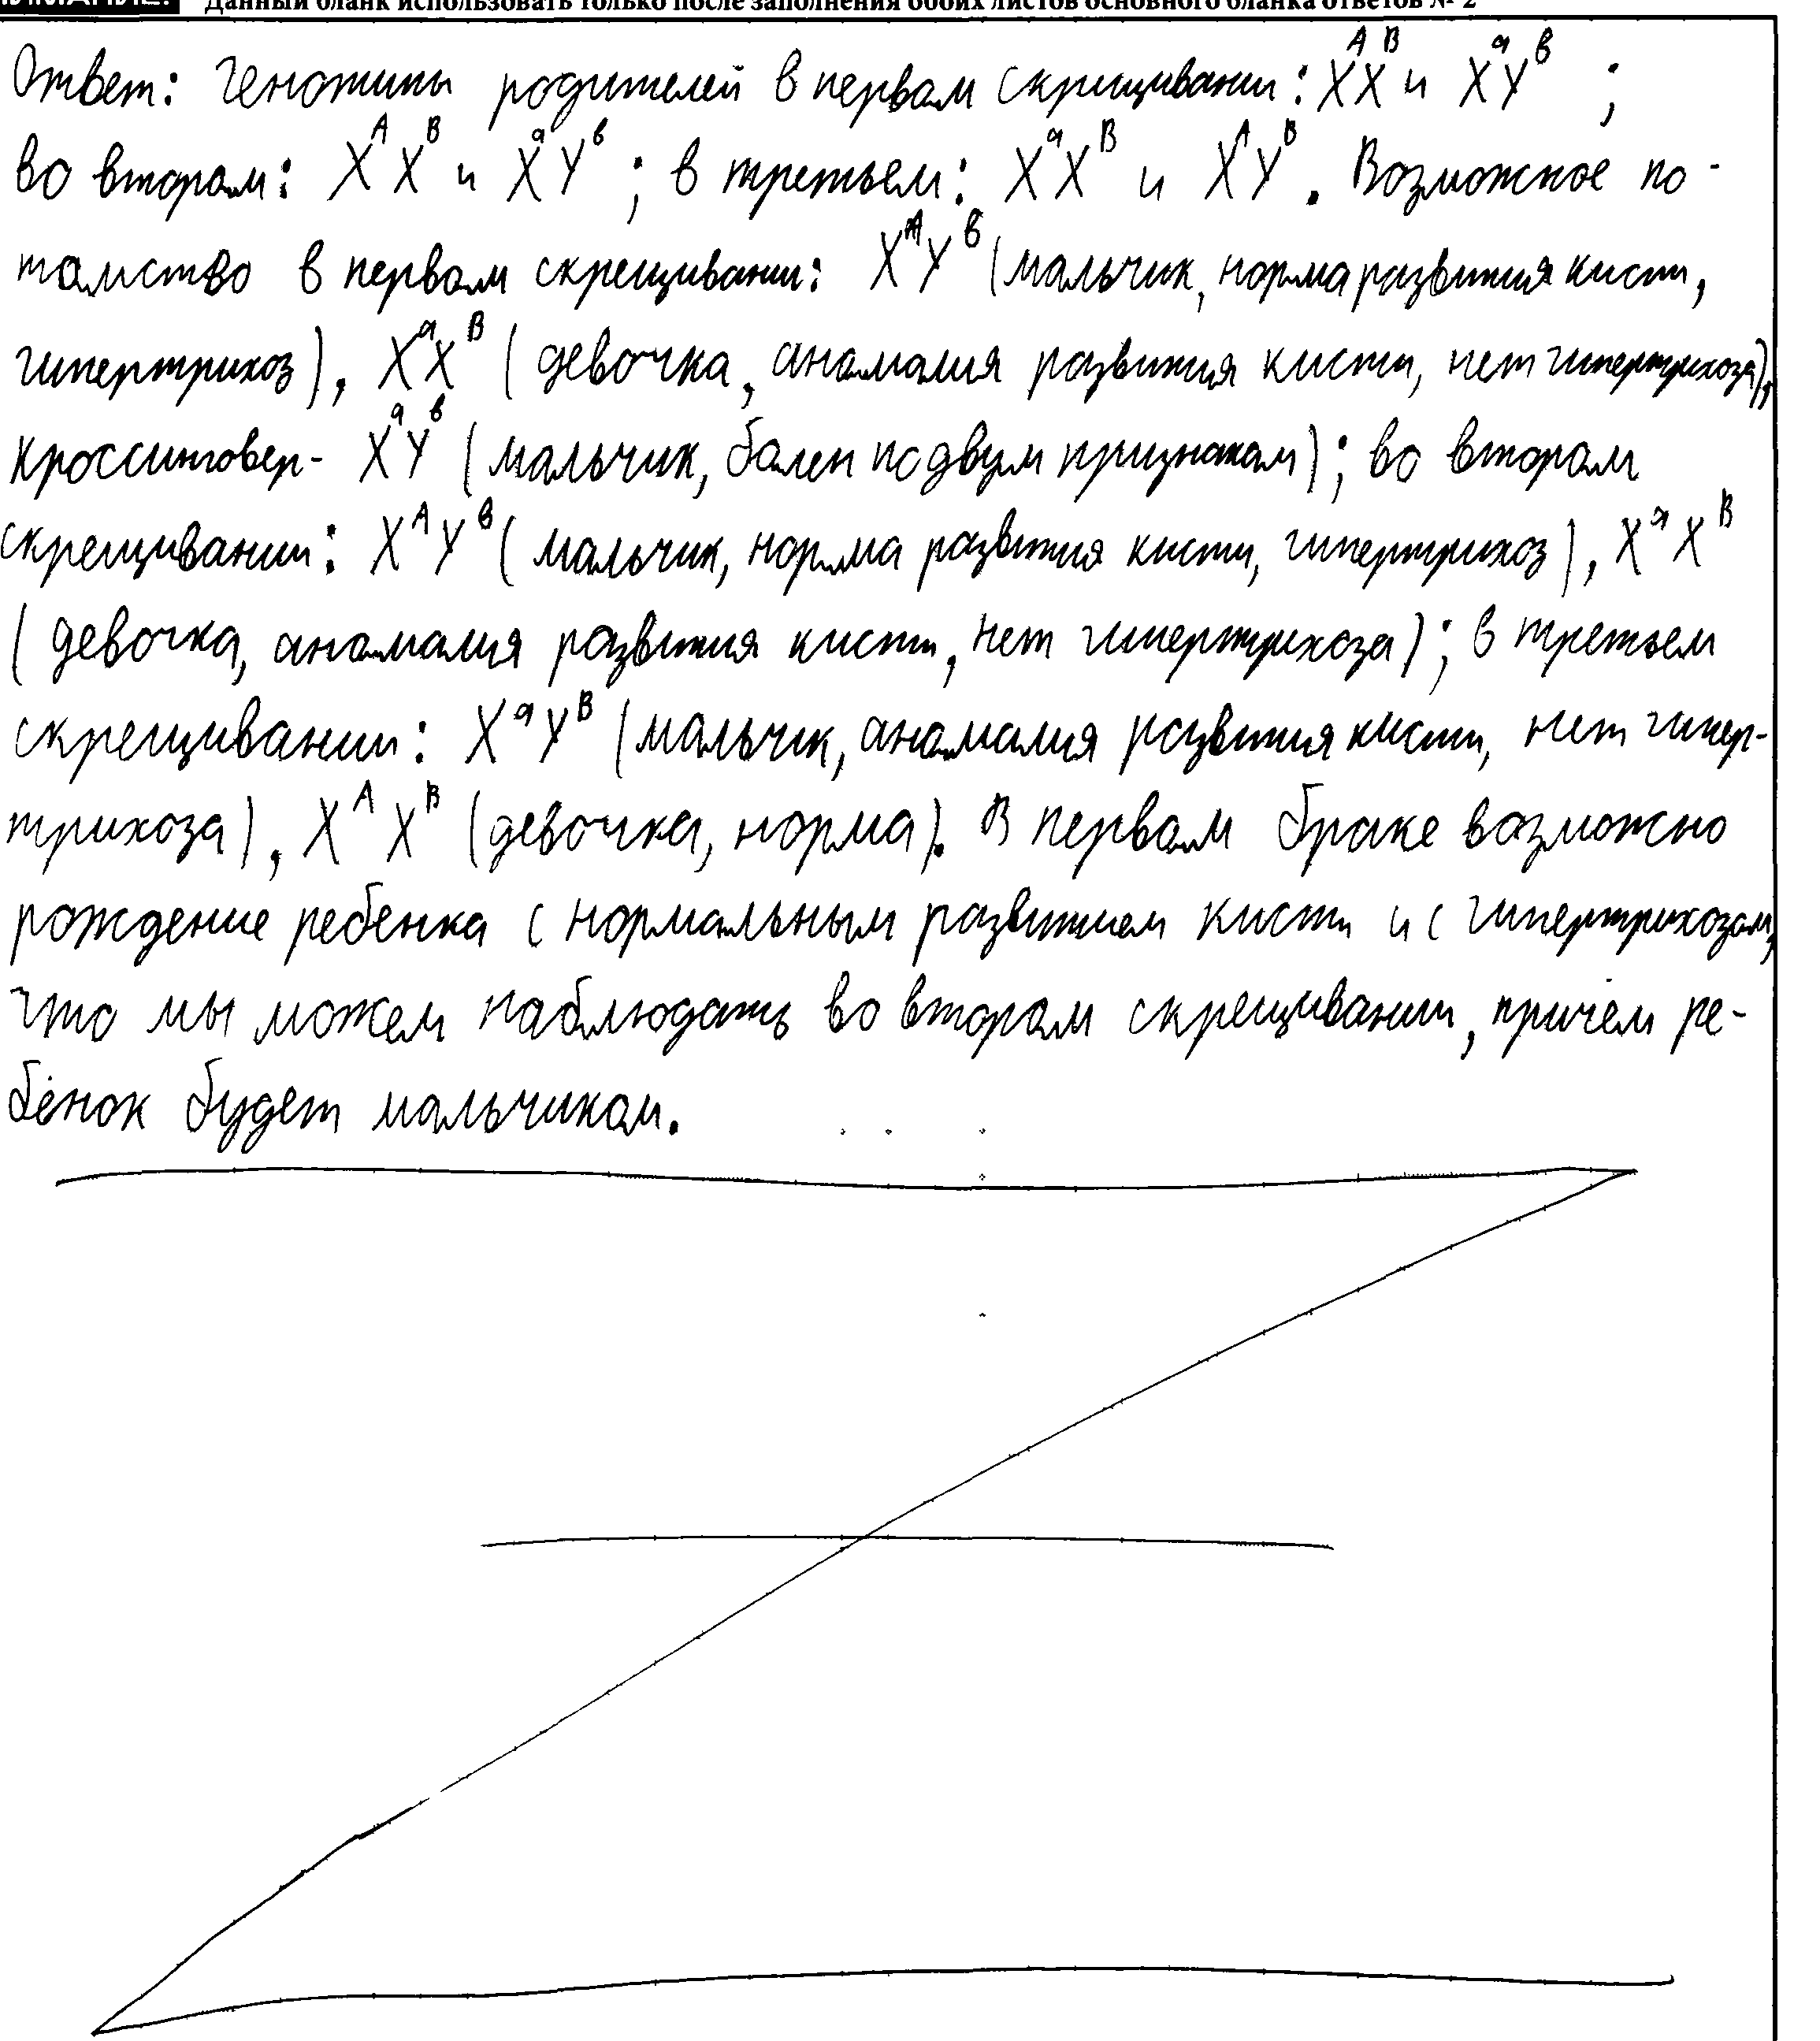 Данный бланк использовать только после заполнения обоих листов основного бланка ответов № 2
Ответ: генотипы родителей в первом скрещивании: XᴬXᴮ и XᵃYᵇ ;
во втором: XᴬXᴮ и XᵃYᵇ ; в третьем: XᵃXᴮ и XᴬYᴮ. Возможное по-
томство в первом скрещивании: XᴬYᵇ (мальчик, норма развития кисти,
гипертрихоз), XᵃXᴮ (девочка, аномалия развития кисти, нет гипертрихоза),
кроссинговер- XᵃYᵇ (мальчик, болен по двум признакам); во втором
скрещивании: XᴬYᵇ (мальчик, норма развития кисти, гипертрихоз), XᵃXᴮ
(девочка, аномалия развития кисти, нет гипертрихоза); в третьем
скрещивании: XᵃYᴮ (мальчик, аномалия развития кисти, нет гипер-
трихоза), XᴬXᴮ (девочка, норма). В первом браке возможно
рождение ребенка с нормальным развитием кисти и с гипертрихозом,
что мы можем наблюдать во втором скрещивании, причем ре-
бёнок будет мальчиком.